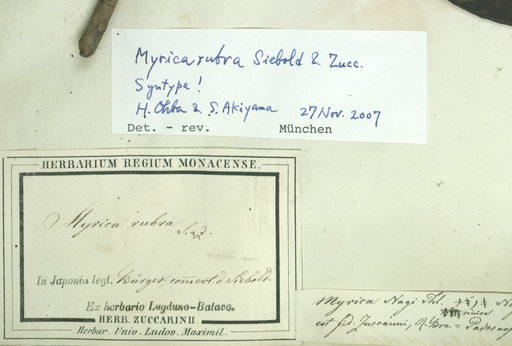 Myrica rubra Siebold & Zucc.
Syntype!
H. Ohba & S. Akiyama 27 Nov. 2007
Det. - rev. München
HERBARIUM REGIUM MONACENSE.
Myrica rubra S. & Z.
In Japonia legt. Bürger comm. d. Siebold.
Ex herbario Lugduno-Batavo.
HERB. ZUCCARINII.
Herbar. Univ. Ludov. Maximil.
Myrica Nagi Th. ナギノキ
est fid. Zuccarini,